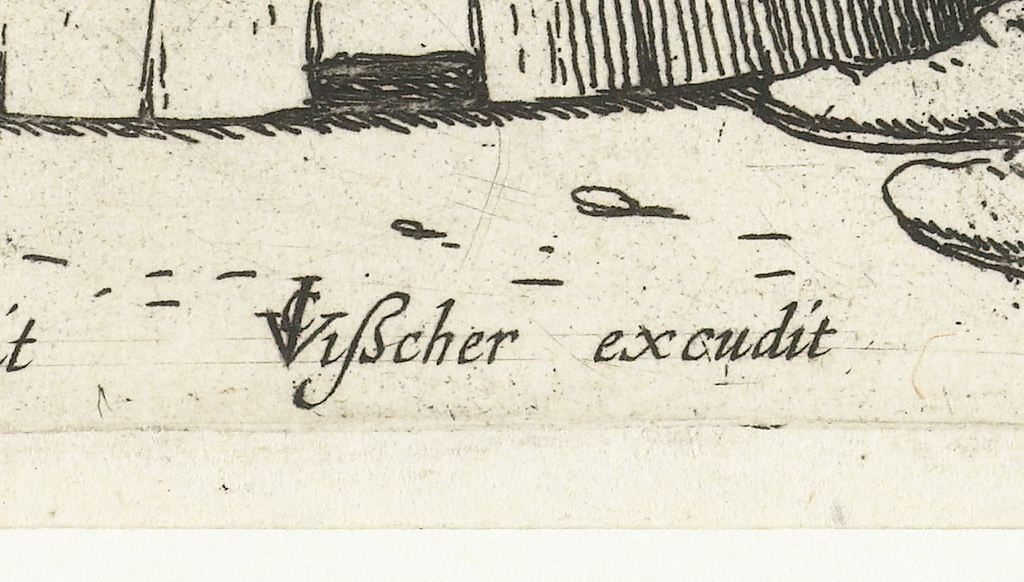 it CJVißcher excudit